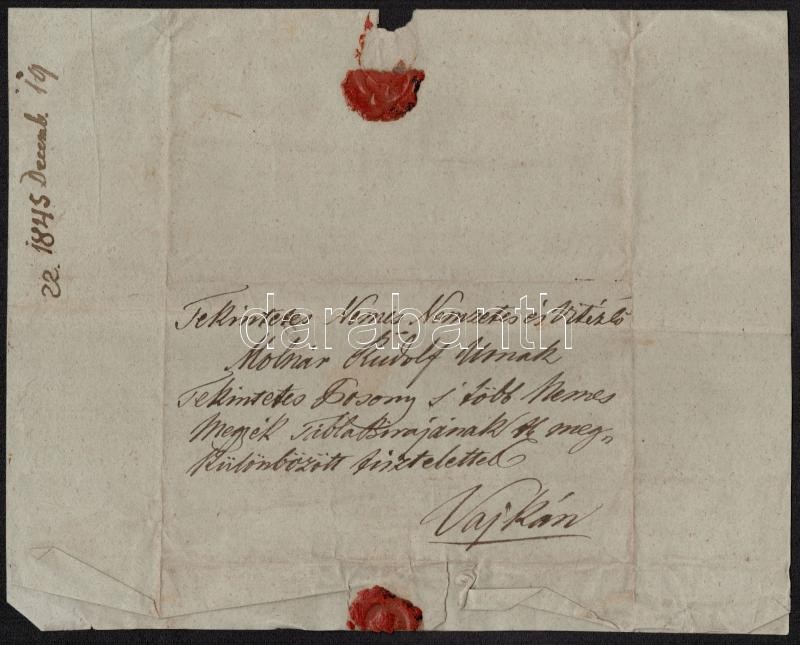 22. 1845 Decemb. 19
Tekintetes Nemes Nemzetes és Vitézlő
Molnár Rudolf Urnak
Tekintetes Posony s' több Nemes
Megyék Táblabirájának meg„
különbözött tisztelettel
Vajkán
darabanth